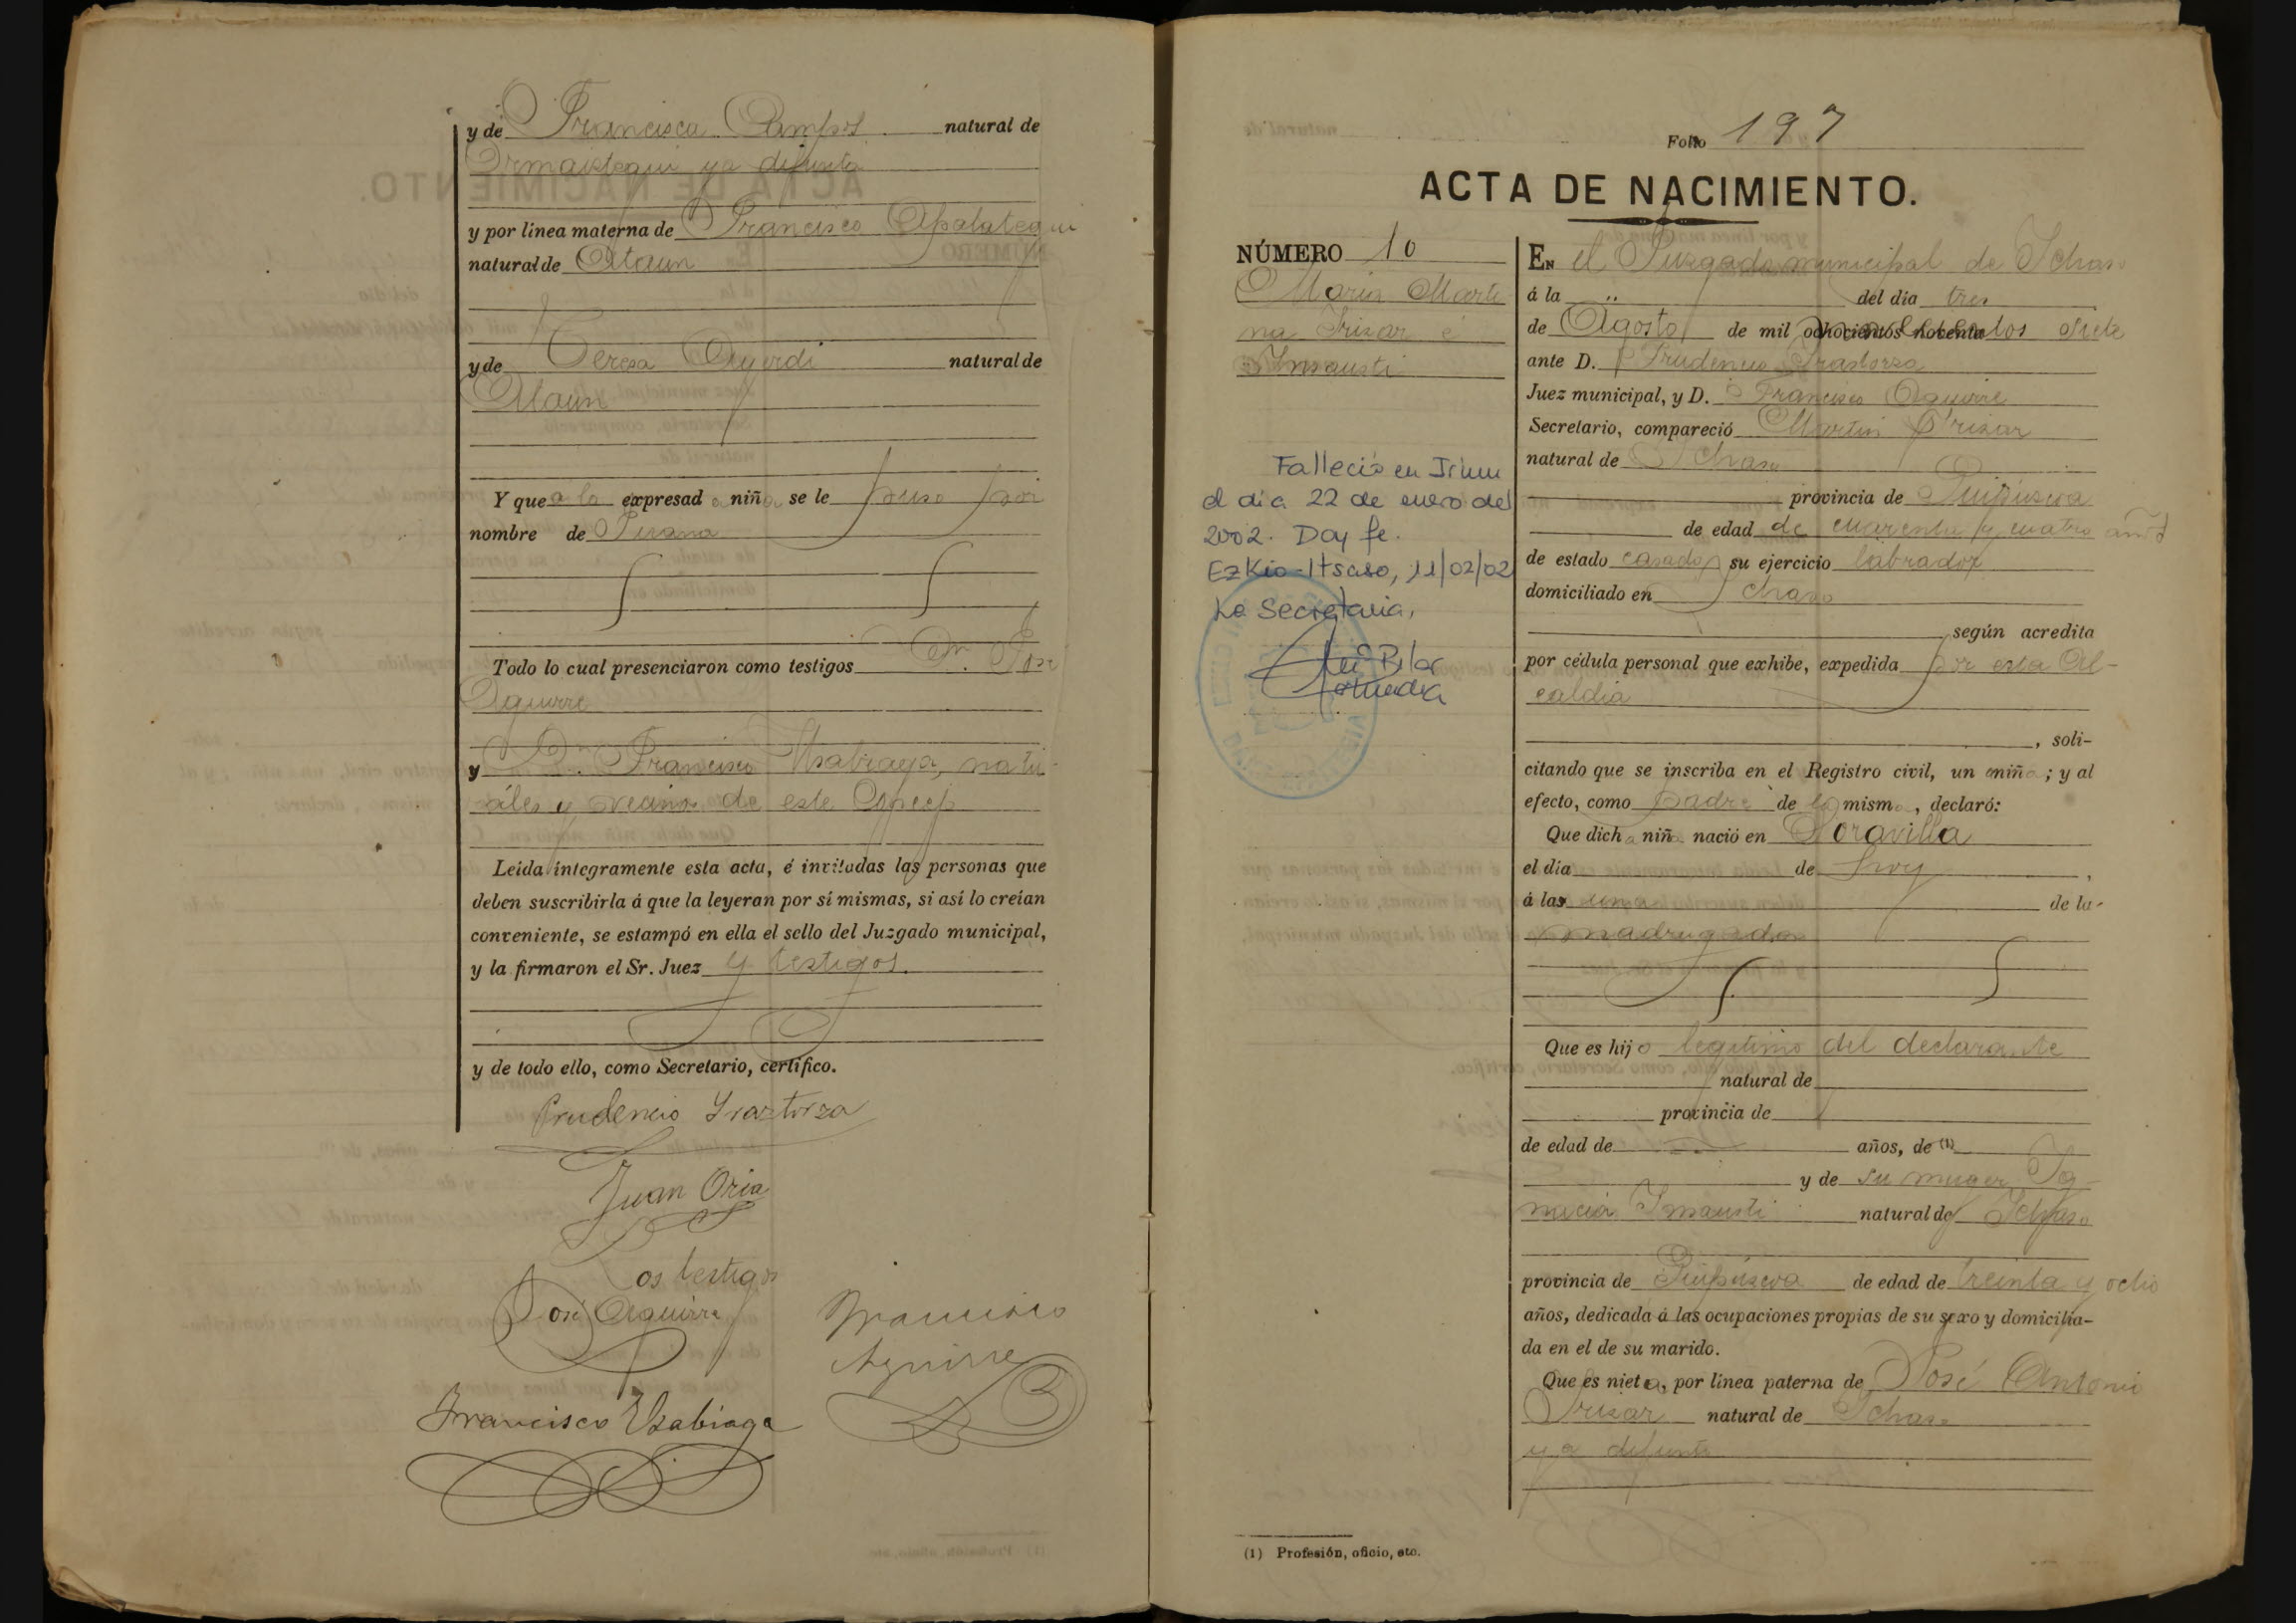 y de Francisca Campos natural de
Ormaiztegui ya difunta
y por línea materna de Francisco Apalategui
natural de Ataun
y de Teresa Ayerdi natural de
Ataun
Y que a la expresada niña se le puso por
nombre de
Todo lo cual presenciaron como testigos Dn. José
Aguirre
y Dn. Francisco Usabiaga, natu-
rales y vecinos de este Concejo
Leída íntegramente esta acta, é invitadas las personas que
deben suscribirla á que la leyeran por sí mismas, si así lo creían
conveniente, se estampó en ella el sello del Juzgado municipal,
y la firmaron el Sr. Juez y testigos.
y de todo ello, como Secretario, certifico.
Prudencio Iraztorza
Juan Oria
Los testigos
José Aguirre
Francisco
Aguirre
Francisco Usabiaga
Folio 197
ACTA DE NACIMIENTO.
NÚMERO 10
Maria Marti
na Irizar é
Insausti
Falleció en Irun
el día 22 de enero del
2002. Doy fe.
Ezkio-Itsaso, 11/02/02
La Secretaria,
En el Juzgado municipal de Ichaso
á la " del día tres
de Agosto de mil novecientos siete
ante D. Prudencio Iraztorza
Juez municipal, y D. Francisco Aguirre
Secretario, compareció Martin Irizar
natural de Ichaso
provincia de Guipúzcoa
de edad de cuarenta y cuatro años
de estado casado su ejercicio labrador
domiciliado en Ichaso
según acredita
por cédula personal que exhibe, expedida por esta Al-
caldia
, soli-
citando que se inscriba en el Registro civil, un niña; y al
efecto, como padre de la misma, declaró:
Que dicha niña nació en Soravilla
el día de hoy,
á las una de la
madrugada
Que es hijo legitimo del declarante
natural de
provincia de
de edad de años, de (1)
y de su muger Ig-
nacia Insausti natural de Ichaso
provincia de Guipúzcoa de edad de treinta y ocho
años, dedicada á las ocupaciones propias de su sexo y domicilia-
da en el de su marido.
Que es nieta, por línea paterna de José Antonio
Irizar natural de Ichaso
ya difunto
(1) Profesión, oficio, etc.